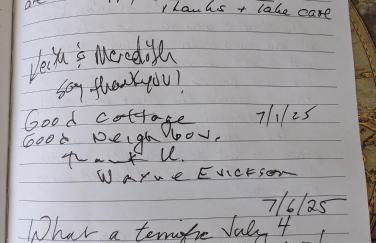 Thanks + Take care
& Meredith
Say thankyou!
Good Cottage 7/1/25
Good Neighbor.
Thank U.
Wayne Erickson
7/6/25
What a terrific July 4